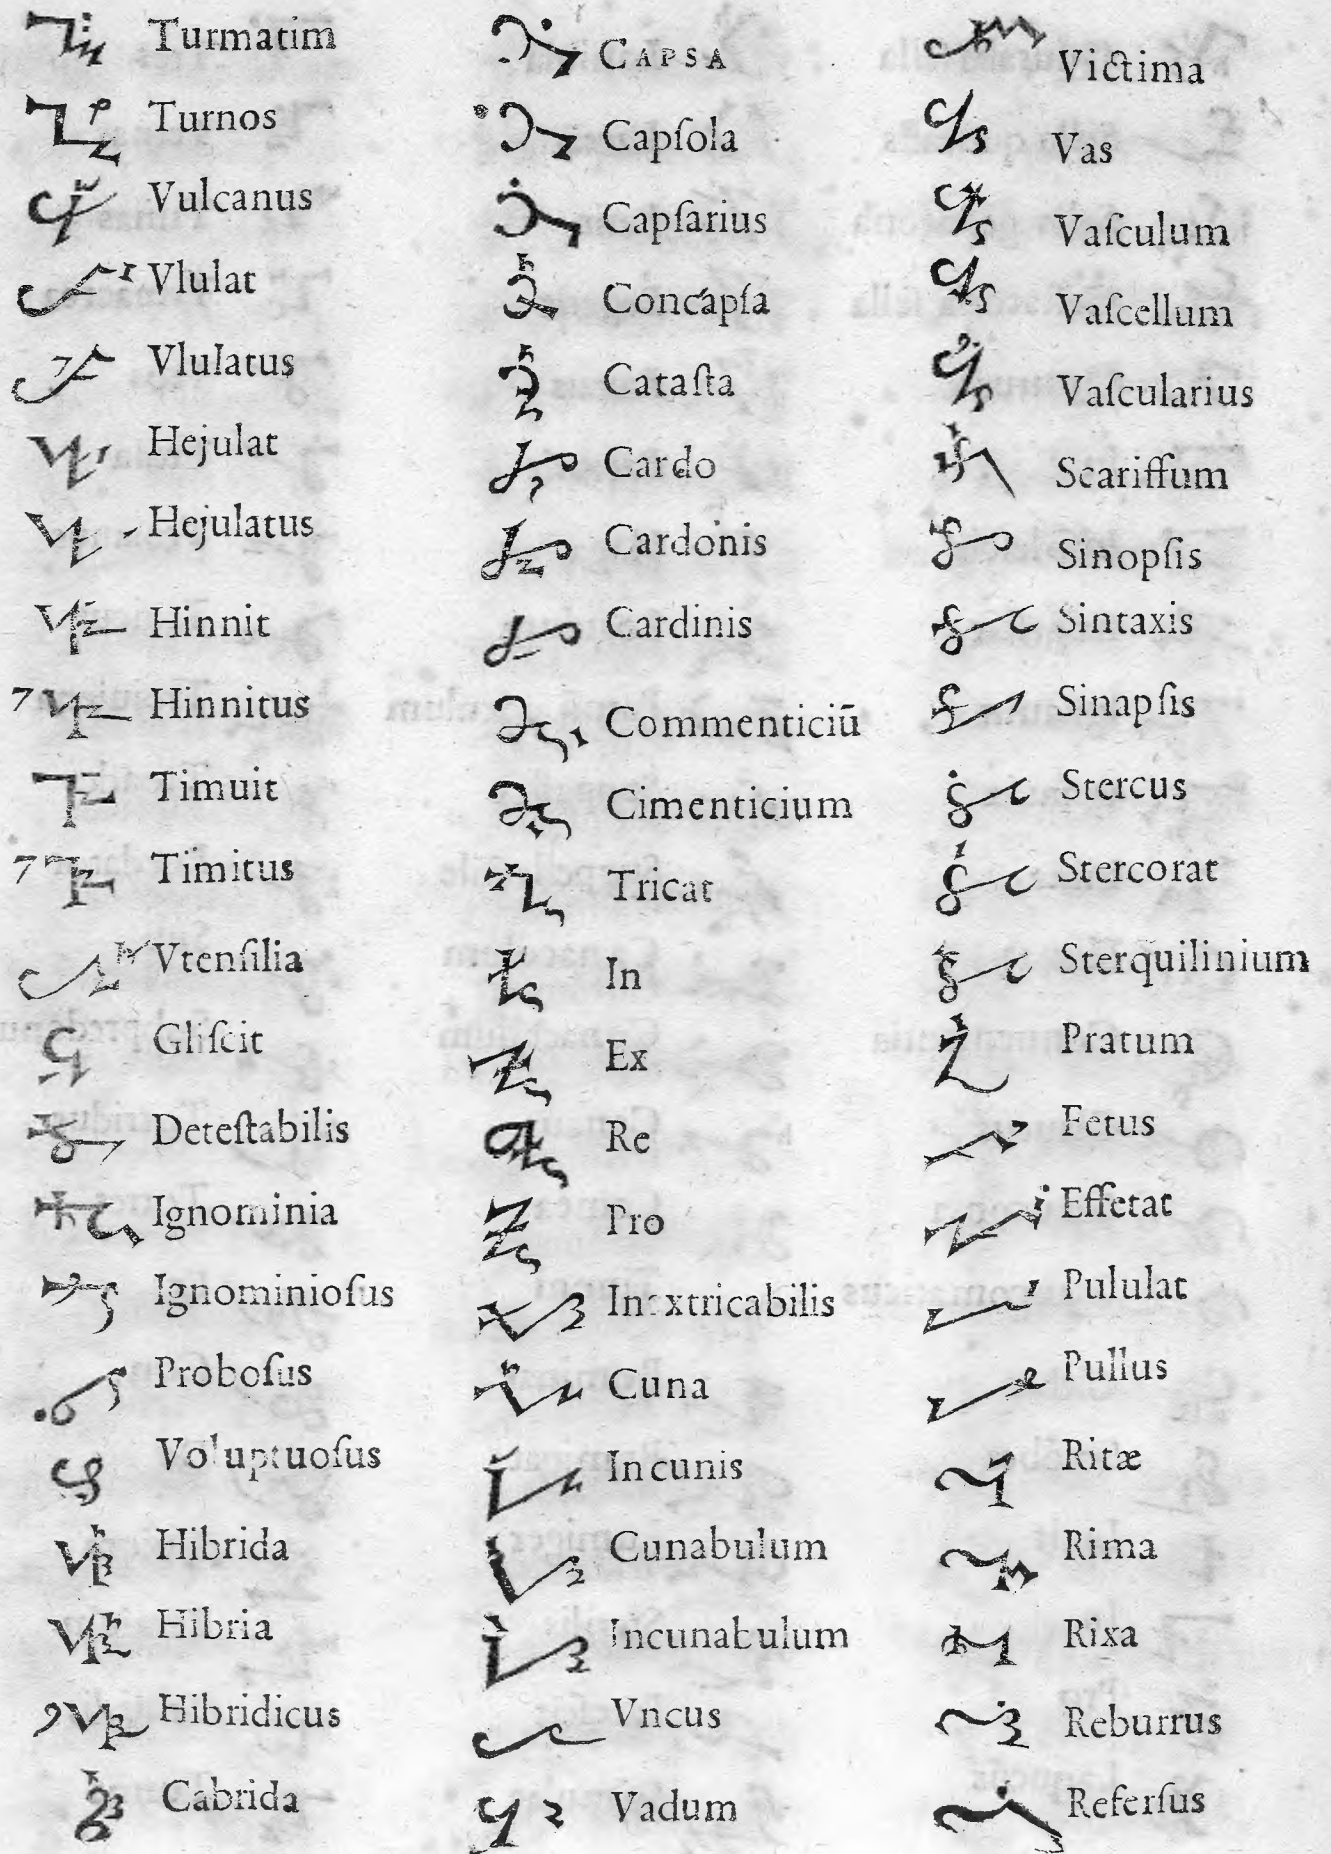 Turmatim
Turnos
Vulcanus
Vlulat
Vlulatus
Hejulat
Hejulatus
Hinnit
Hinnitus
Timuit
Timitus
Vtenſilia
Gliſcit
Deteſtabilis
Ignominia
Ignominioſus
Proboſus
Voluptuoſus
Hibrida
Hibria
Hibridicus
Cabrida
CAPSA
Capſola
Capſarius
Concapſa
Cataſta
Cardo
Cardonis
Cardinis
Commenticiū
Cimenticium
Tricat
In
Ex
Re
Pro
Inextricabilis
Cuna
Incunis
Cunabulum
Incunabulum
Vncus
Vadum
Victima
Vas
Vaſculum
Vaſcellum
Vaſcularius
Scariffum
Sinopſis
Sintaxis
Sinapſis
Stercus
Stercorat
Sterquilinium
Pratum
Fetus
Effetat
Pululat
Pullus
Ritæ
Rima
Rixa
Reburrus
Referſus